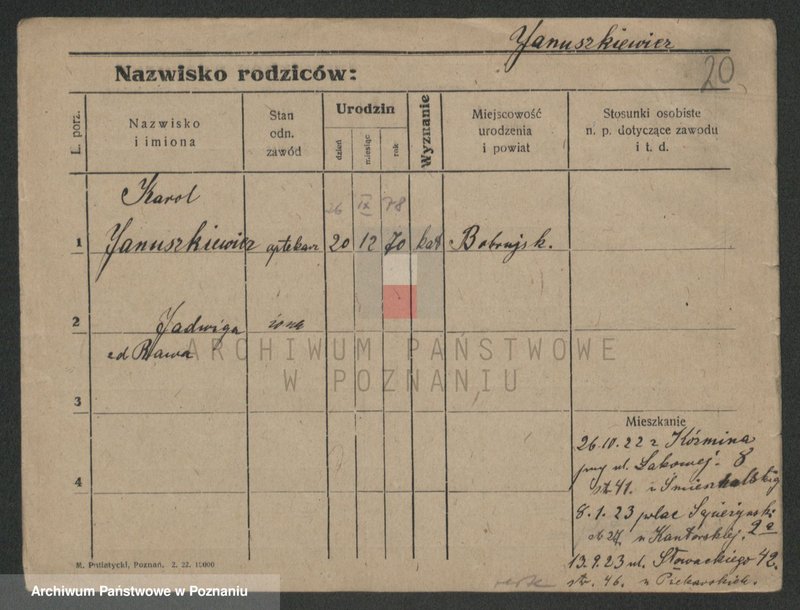 Januszkiewicz
20
Nazwisko rodziców:
L. porz.
Nazwisko
i imiona
Stan
odn.
zawód
Urodzin
dzień
miesiąc
rok
Wyznanie
Miejscowość
urodzenia
i powiat
Stosunki osobiste
n. p. dotyczące zawodu
i t. d.
Karol
26 IX 78
1 Januszkiewicz aptekarz 20 12 70 kat Bobrujsk.
2 Jadwiga żona
z d Rawa
ARCHIWUM PAŃSTWOWE
W POZNANIU
3
4
Mieszkanie
26.10.22 z Koźmina
przy ul. Łąkowej. 8
str. 41. u
8.1.23 plac
u Kantorskiej. 2a
13.9.23 ul. Słowackiego 42.
str. 46. u Piekarskich.
M. Putiatycki, Poznań. 2. 22. 10000
Archiwum Państwowe w Poznaniu